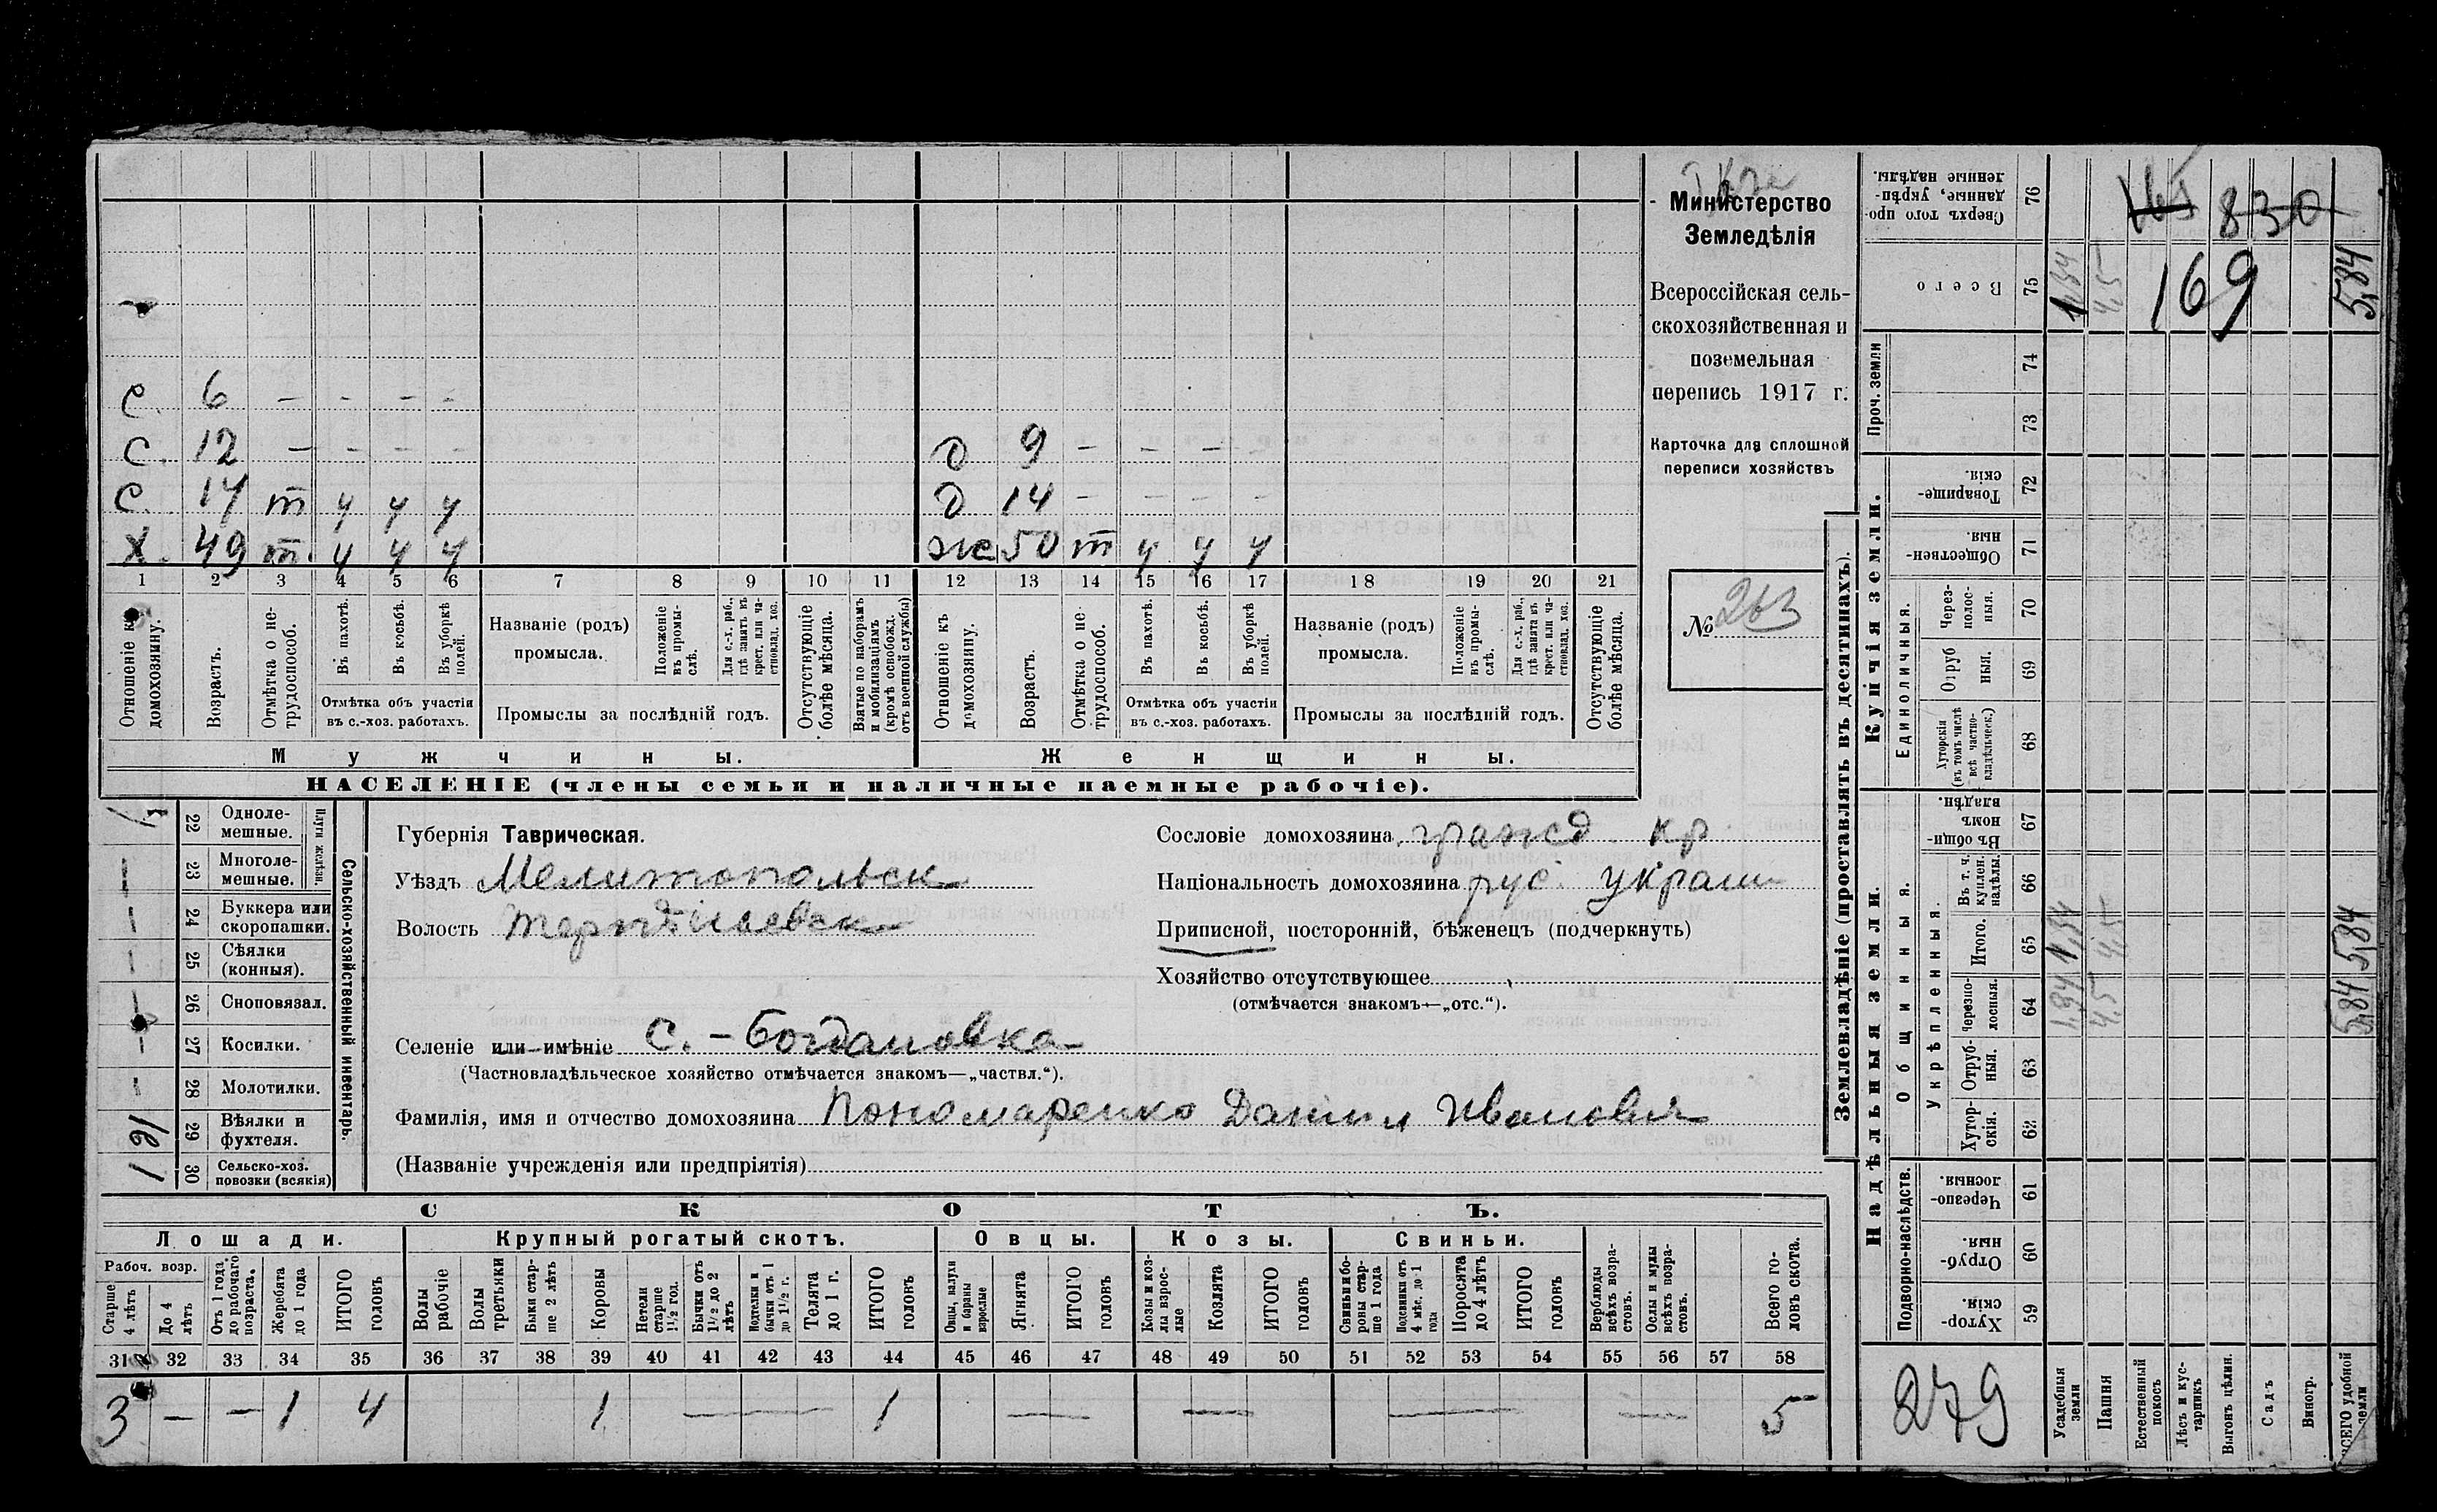 Министерство
Земледѣлія
Всероссійская сель-
скохозяйственная и
поземельная
перепись 1917 г.
Карточка для сплошной
переписи хозяйствъ
№ 263
С. 6 - - - -
С. 12 - - - -
д 9 - - - -
С. 14 т у у у
д 14 - - - -
Х. 49 т. у у у
ж 50 т у у у
1 2 3 4 5 6 7 8 9 10 11 12 13 14 15 16 17 18 19 20 21
Отношеніе къ домохозяину.
Возрастъ.
Отмѣтка о не-трудоспособ.
Въ пахотѣ.
Въ косьбѣ.
Въ уборкѣ полей.
Отмѣтка объ участіи
въ с.-хоз. работахъ.
Названіе (родъ)
промысла.
Положеніе въ промы-слѣ.
Для с.-х. раб., гдѣ занятъ въ крест. или ча-стновлад. хоз.
Промыслы за послѣдній годъ.
Отсутствующіе болѣе мѣсяца.
Взятые по наборамъ и мобилизаціямъ (кромѣ освобожд. отъ военной службы)
Отношеніе къ домохозяину.
Возрастъ.
Отмѣтка о не-трудоспособ.
Въ пахотѣ.
Въ косьбѣ.
Въ уборкѣ полей.
Отмѣтка объ участіи
въ с.-хоз. работахъ.
Названіе (родъ)
промысла.
Положеніе въ промы-слѣ.
Для с.-х. раб., гдѣ занята въ крест. или ча-стновлад. хоз.
Промыслы за послѣдній годъ.
Отсутствующіе болѣе мѣсяца.
Мужчины.
Женщины.
НАСЕЛЕНІЕ (члены семьи и наличные наемные рабочіе).
Сельско-хозяйственный инвентарь.
Плуги желѣзн.
1 22 Одноле-мешные.
— 23 Многоле-мешные.
— 24 Буккера или скоропашки.
— 25 Сѣялки (конныя).
— 26 Сноповязал.
— 27 Косилки.
— 28 Молотилки.
29 Вѣялки и фухтеля.
1 30 Сельско-хоз. повозки (всякія)
Губернія Таврическая.
Уѣздъ Мелитопольск
Волость
Сословіе домохозяина гражд. кр
Національность домохозяина рус. украин
Приписной, посторонній, бѣженецъ (подчеркнуть)
Хозяйство отсутствующее
(отмѣчается знакомъ—„отс.“).
Селеніе или имѣніе С. - Богдановка
(Частновладѣльческое хозяйство отмѣчается знакомъ—„частвл.“).
Фамилія, имя и отчество домохозяина Пономаренко Данил Иванович
(Названіе учрежденія или предпріятія)
СКОТЪ.
Лошади.
Крупный рогатый скотъ.
Овцы.
Козы.
Свиньи.
Рабоч. возр.
Старше 4 лѣтъ
До 4 лѣтъ
Отъ 1 года до рабочаго возраста.
Жеребята до 1 года
ИТОГО головъ
Волы рабочіе
Волы третьяки
Быки стар-ше 2 лѣтъ
Коровы
Нетели старше 1½ год.
Бычки отъ 1½ до 2 лѣтъ
Нетелки и бычки отъ 1 до 1½ г.
Телята до 1 г.
ИТОГО головъ
Овцы, валухи и бараны взрослые
Ягнята
ИТОГО головъ
Козы и коз-лы взрос-лые
Козлята
ИТОГО головъ
Свиньи бо-ровы стар-ше 1 года
Подсвинки отъ 4 мѣс. до 1 года
Поросята до 4 лѣтъ
ИТОГО головъ
Верблюды всѣхъ возра-стовъ.
Ослы и мулы всѣхъ возра-стовъ.
Всего го-ловъ скота.
31 32 33 34 35 36 37 38 39 40 41 42 43 44 45 46 47 48 49 50 51 52 53 54 55 56 57 58
3 — — 1 4 1 — 1 — — — — 5
Землевладѣніе (проставлять въ десятинахъ).
Надѣльныя земли.
Купчія земли.
Проч. земли
Подворно-наслѣдств.
Общинныя.
Укрѣпленныя.
Единоличныя.
76 Сверхъ того про-данные, укрѣп-ленные надѣлы.
830
75 Всего
1,34 4,5 5,84
169
74
73
72 Товарище-скія.
71 Обществен-ныя.
70 Через-полос-ныя.
69 Отруб ныя.
68 Хуторскія (въ томъ числѣ всѣ частно-владѣльческ.)
67 Въ общи-номъ владѣн.
66 Въ т. ч. куплен. надѣлы.
65 Итого.
1,34 4,5 5,84
64 Черезпо-лосныя.
1,34 4,5 5,84
63 Отруб-ныя.
62 Хутор-скія.
61 Черезпо-лосныя.
60 Отруб-ныя.
59 Хутор-скія.
279
Усадебныя земли
Пашня
Естественный покосъ
Лѣсъ и кус-тарникъ
Выгонъ цѣлин.
Садъ
Виногр.
ВСЕГО удобной земли